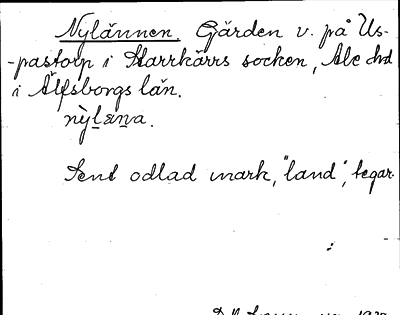 Nylännen. Gärden v. på Us-
-pastorp i Starrkärrs socken, Ale hd
i Älfsborgs län.
Sent odlad mark, "land", tegar.